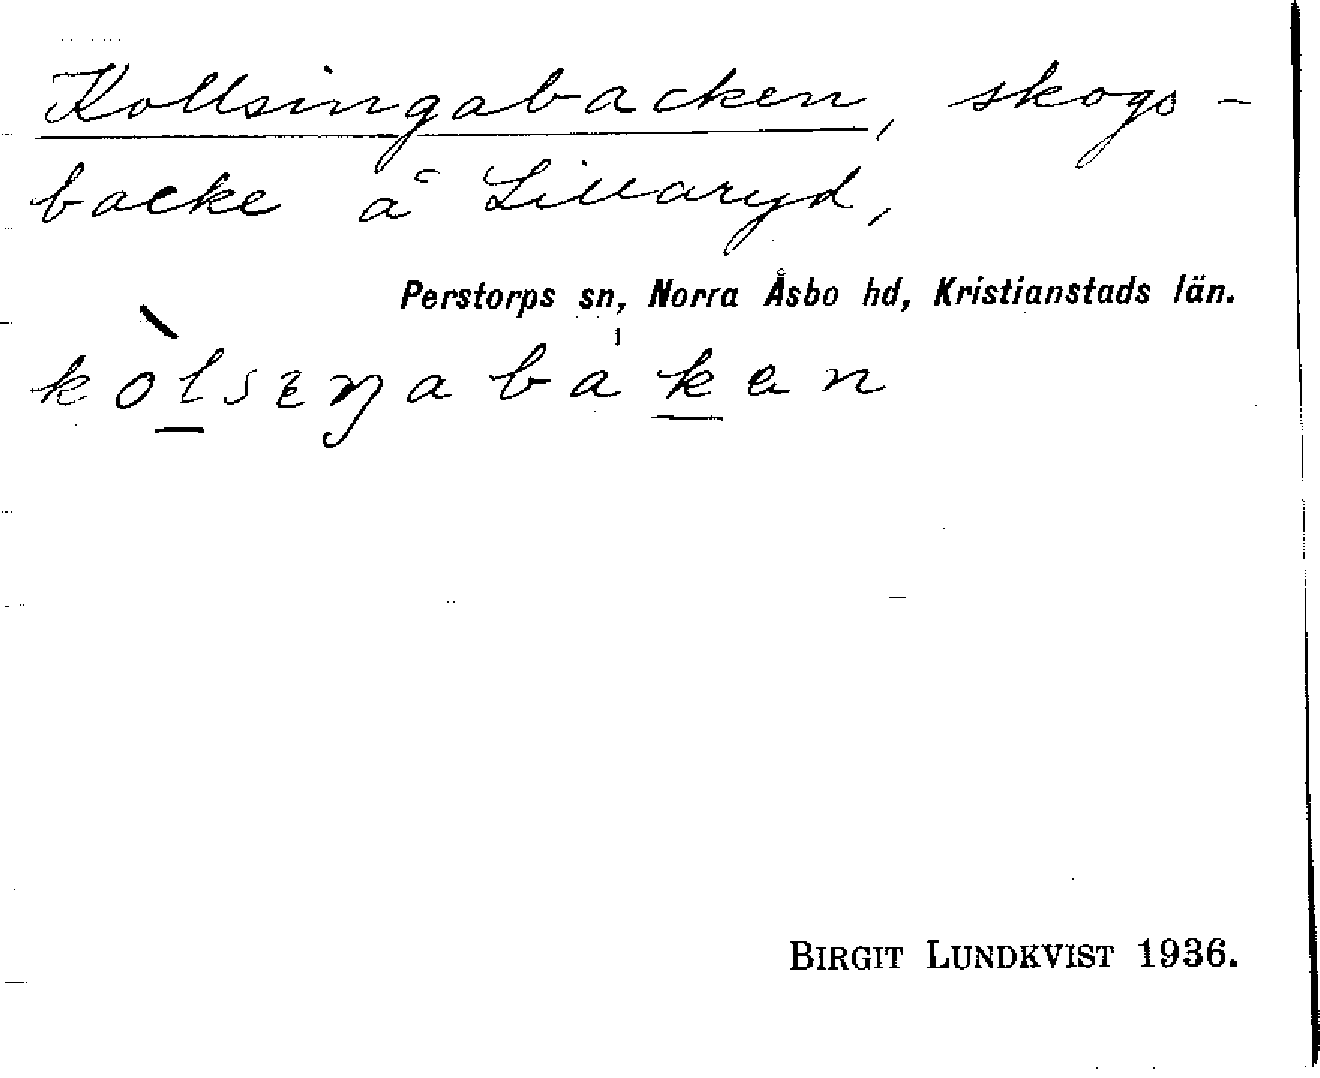 Kollsingabacken, skogs-
backe å Lillaryd,
Perstorps sn, Norra Åsbo hd, Kristianstads län.
kòl̲sɛŋabak̲ən
BIRGIT LUNDKVIST 1936.